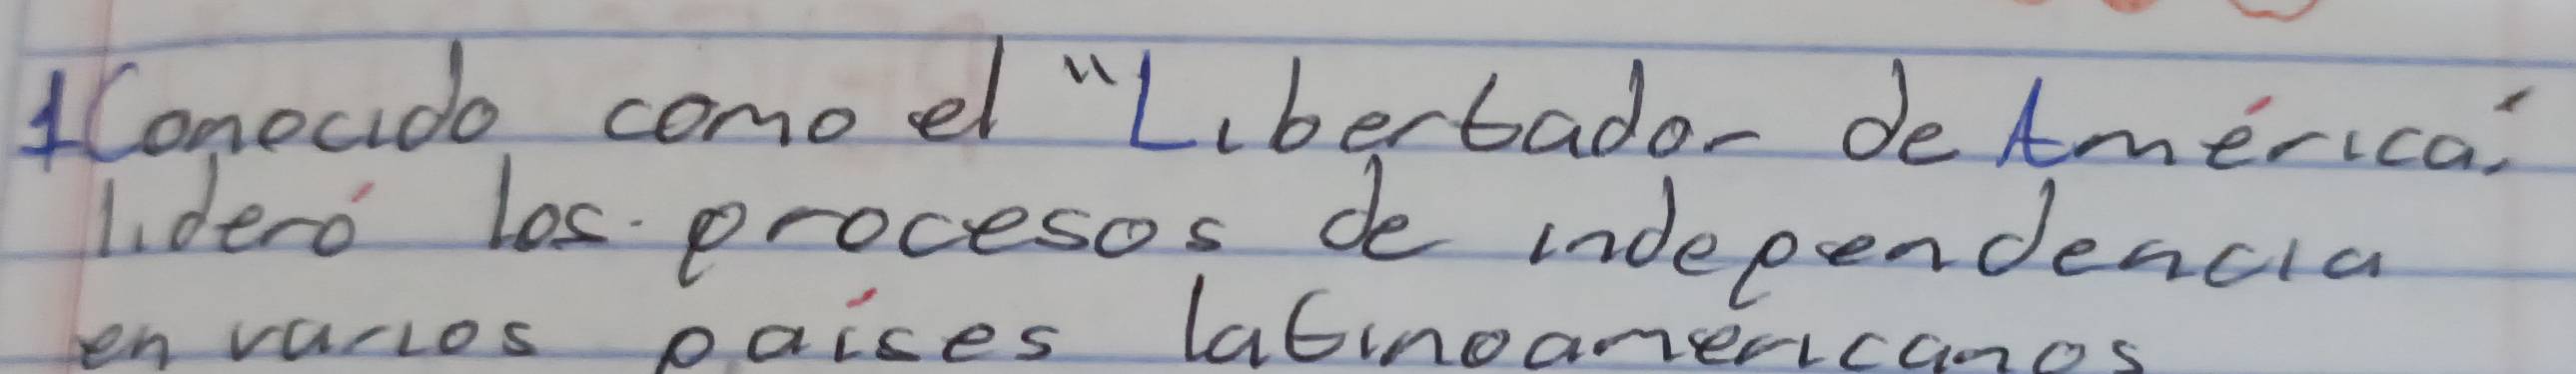 1 Conocido como el "Libertador de América",
lideró los procesos de independencia
en varios países latinoamericanos